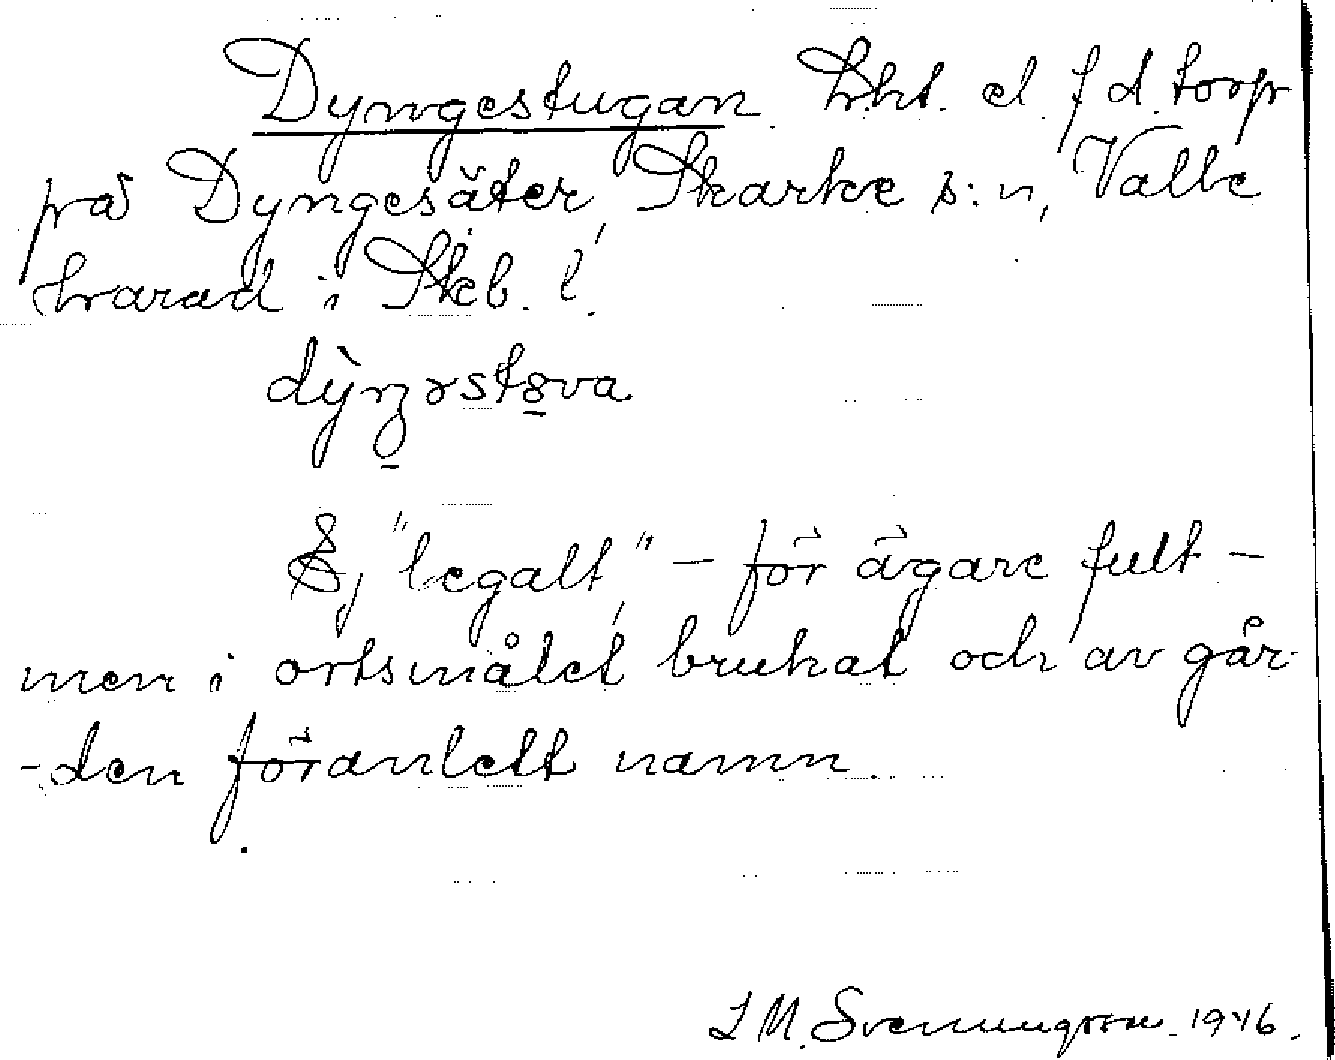 Dyngestugan. lht. el. f.d. torp
på Dyngesäter, Skarke s:n, Valle
härad i Skb. l.
dỳŋəstɷva
Ej "legalt", – för ägare fult –
men i ortsmålet brukat och av går-
-den föranlett namn.
Svenungsson. 1946.